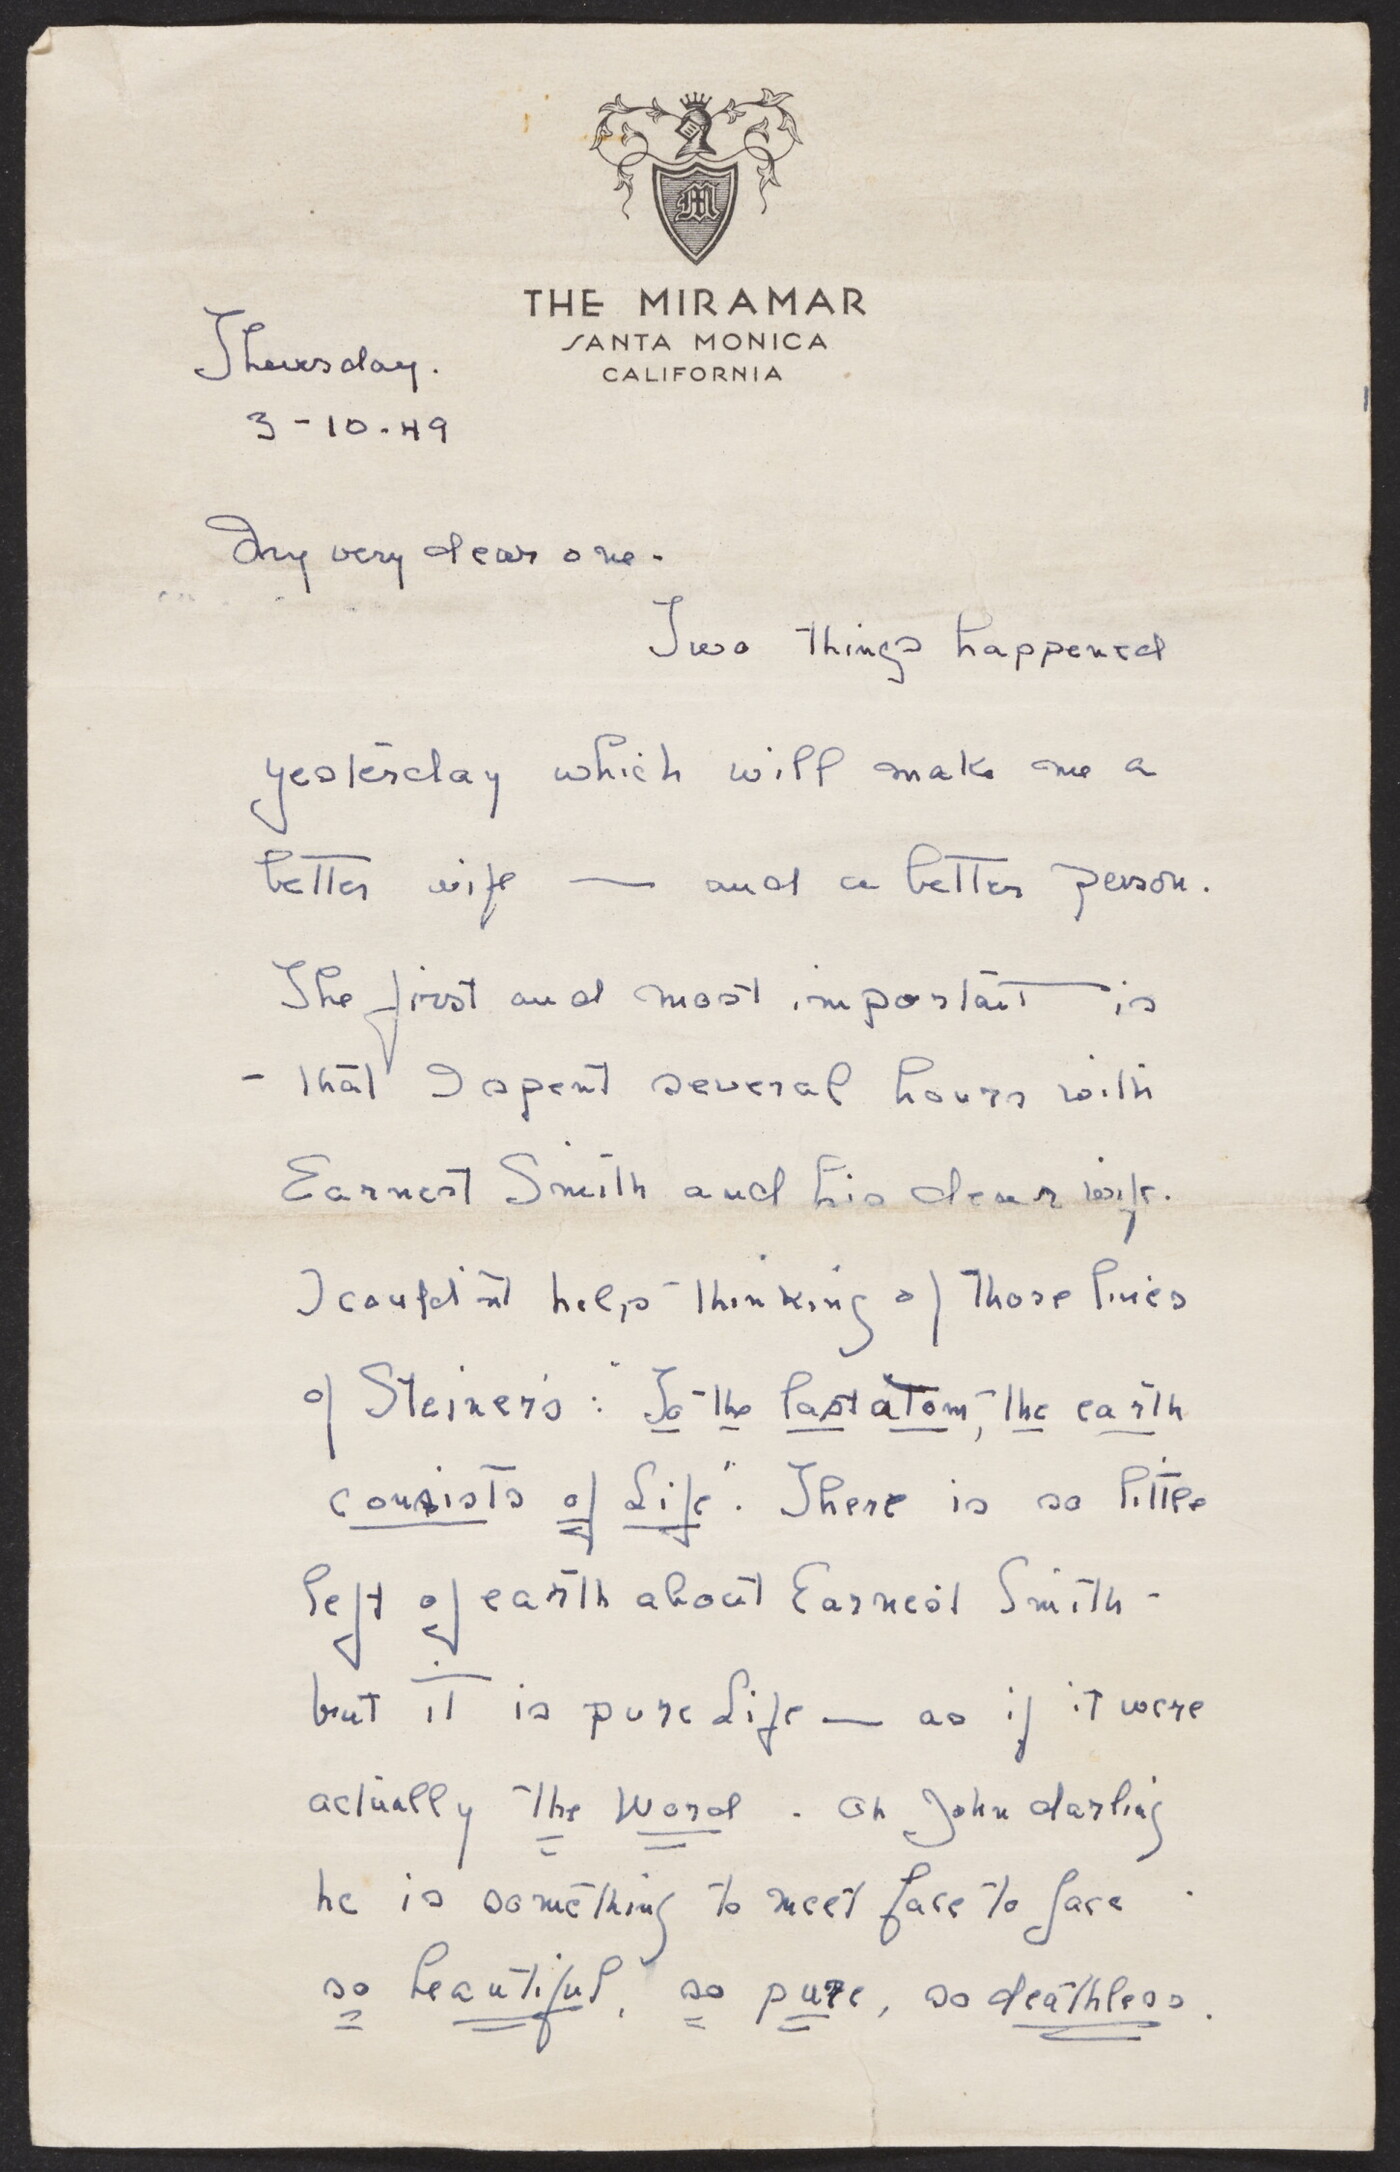 M
THE MIRAMAR
SANTA MONICA
CALIFORNIA
Thursday.
3-10-49
My very dear one.
Two things happened
yesterday which will make me a
better wife — and a better person.
The first and most important is
- that I spent several hours with
Earnest Smith and his dear wife.
I couldn't help thinking of those lines
of Steiner's: "To the last atom, the earth
consists of Life". There is so little
left of earth about Earnest Smith -
but it is pure Life — as if it were
actually the Word. Oh John darling
he is something to meet face to face
so beautiful, so pure, so deathless.